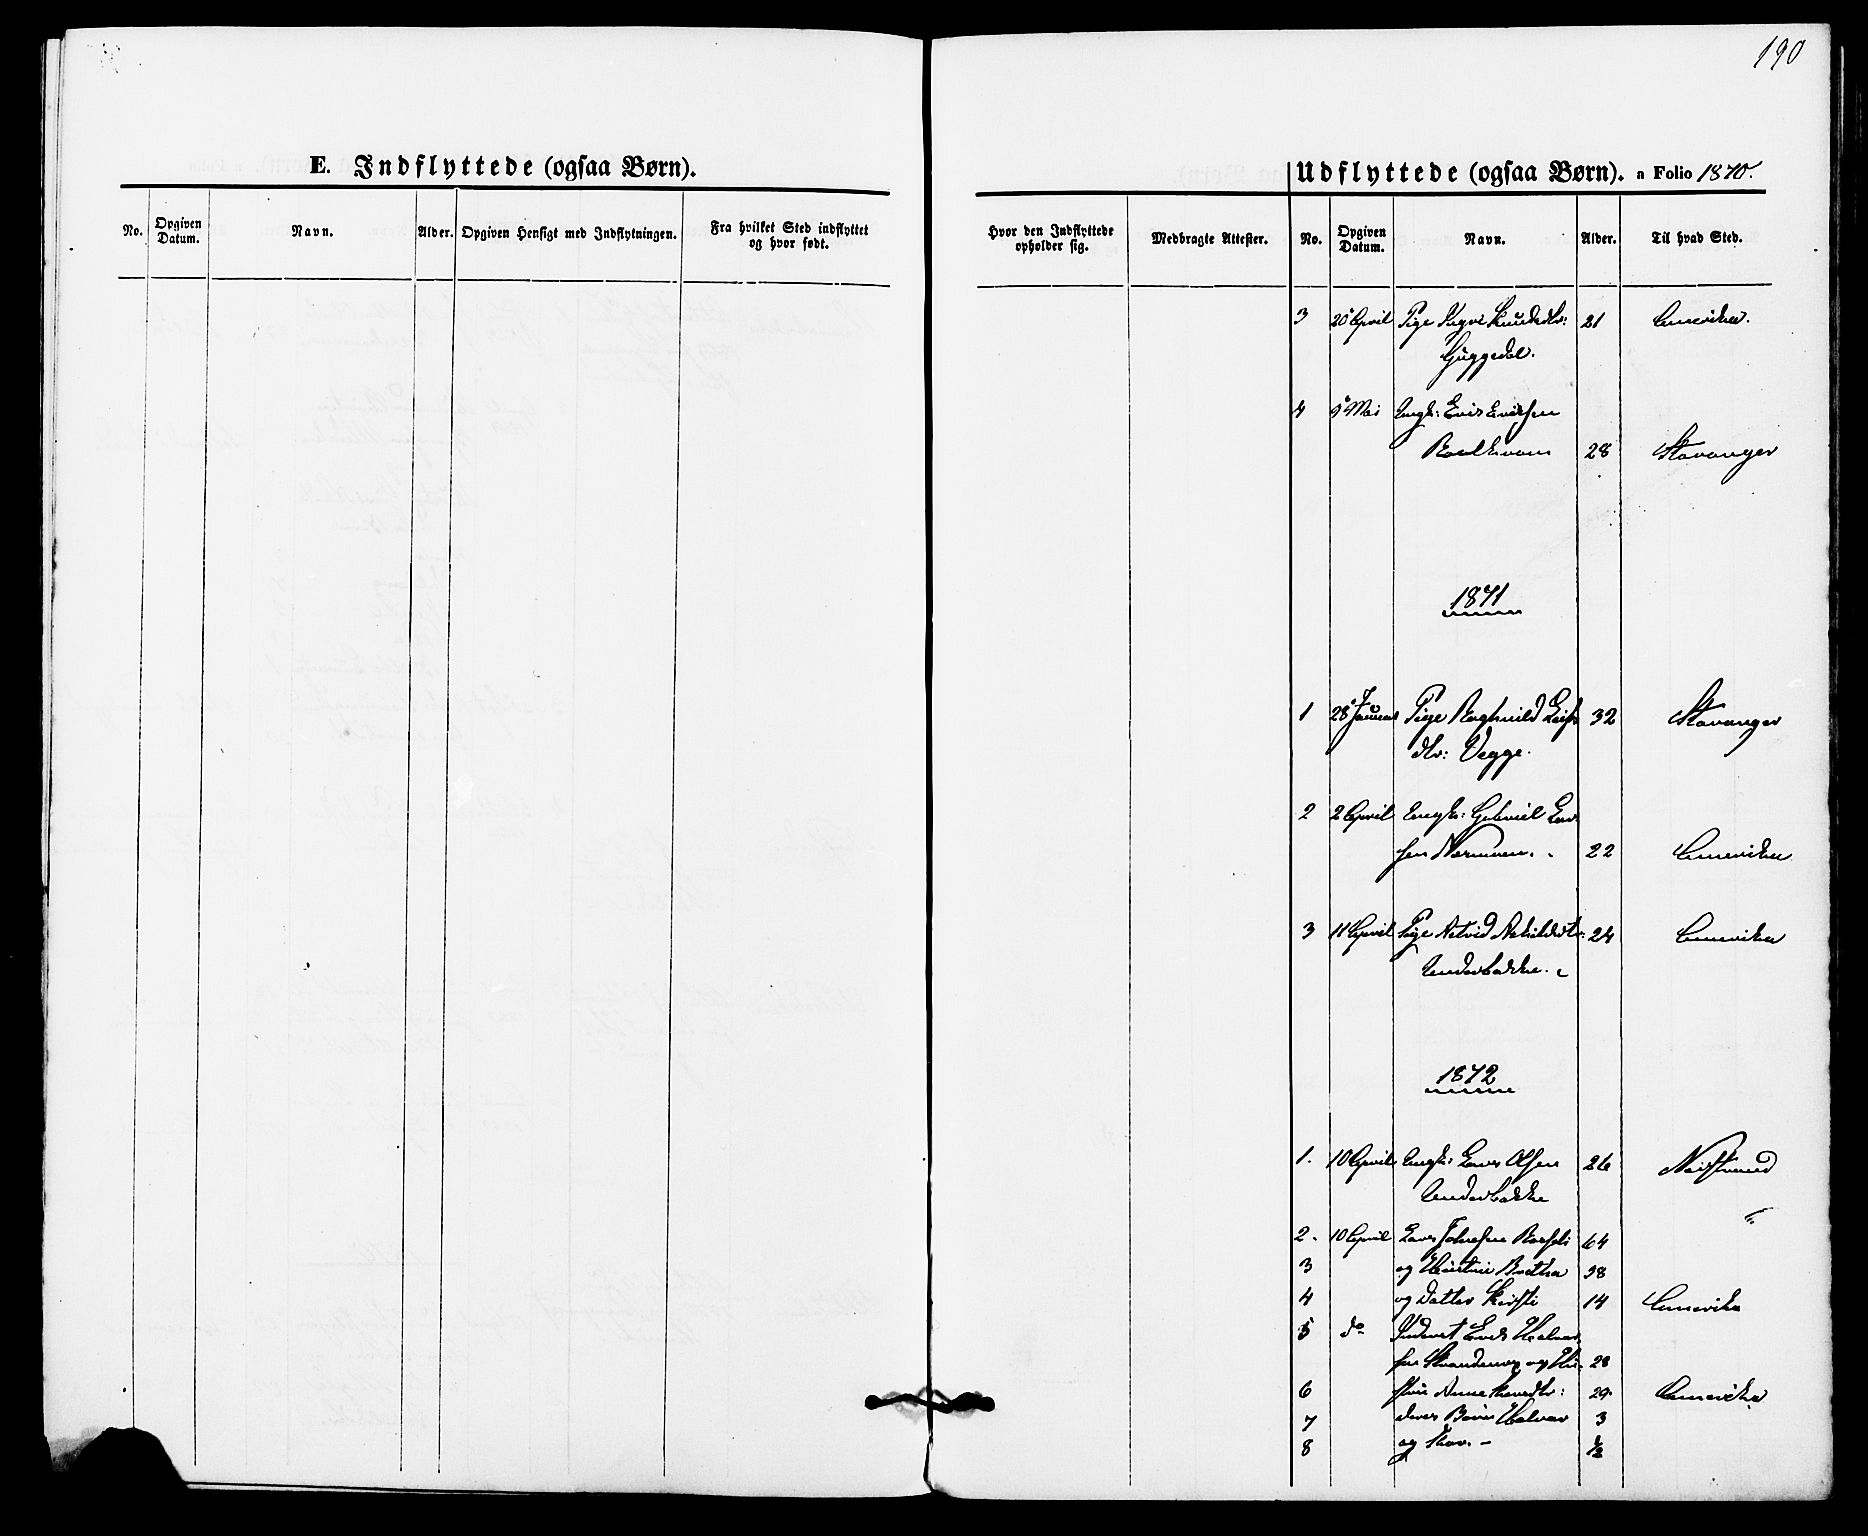 190
E. Indflyttede (ogsaa Børn).
No.
Opgiven Datum.
Navn.
Alder.
Opgiven Hensigt med Indflytningen.
Fra hvilket Sted indflyttet
og hvor født.
Udflyttede (ogsaa Børn). a Folio 1870.
Hvor den Indflyttede
opholder sig.
Medbragte Attester.
No.
Opgiven Datum.
Navn.
Alder.
Til hvad Sted.
3 20 April Pige 21 Amerika.
4 9 Mai Ungk:
28 Stavanger
1871
1 28 Pige Raghnild 32 Stavanger
dtr: Vegge.
2 2 April Ungk: Gabriel
22 Amerika
3 11 April Pige 24 Amerika
Underbakke.
1872
1. 10 April Ungk: Lars Olsen 26 Nerstrand
Underbakke
2. 10 April Lars Johnsen 64 "
3 og Hustrue Bertha 38
4 og Datter Kirsti 14 Amerika
5 do
og Hu- 28
6 strue Anne 29 Amerika
7 deres Børn Halvor 3
8 og Thor. - ½